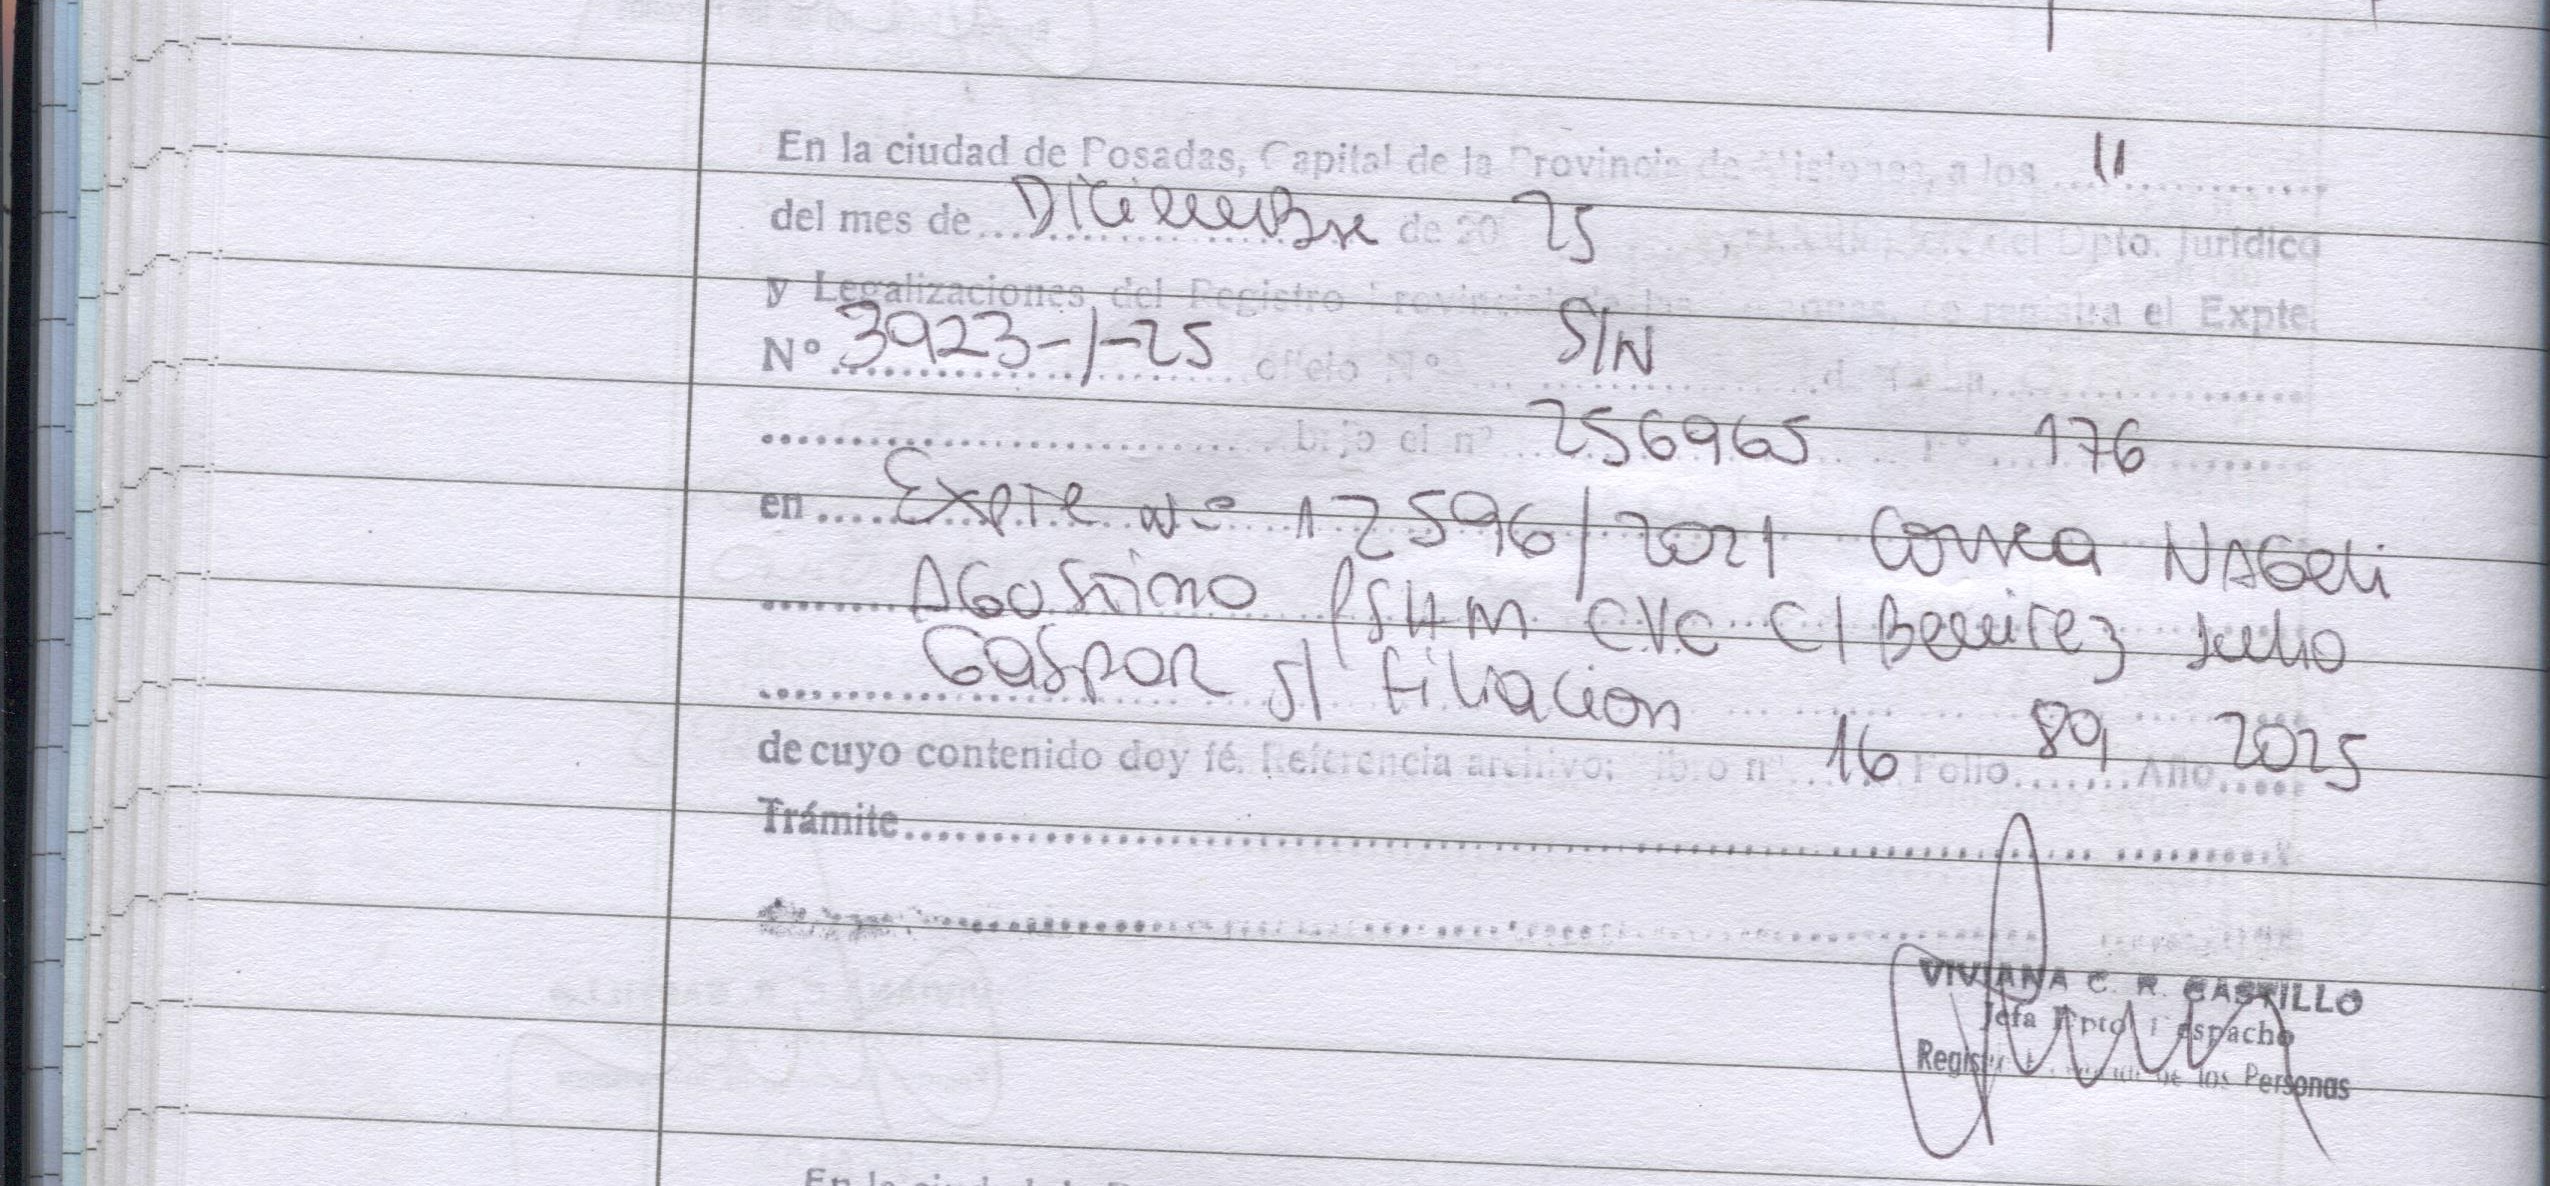 En la ciudad de Posadas, Capital de la Provincia de Misiones, a los 11
del mes de Diciembre de 20 25 del Dpto. Jurídico
y Legalizaciones del Registro Provincial de las Personas, se registra el Expte.
N° 3923-1-25 oficio N° S/N
bajo el n° 256965 F° 176
en Expte N° 12596/2021 Correa NAGeli
AGostino P.S.H.M C.V.C C/ Benitez Julio
Gaspar s/ Filiacion
de cuyo contenido doy fé. Referencia archivo: libro n° 16 Folio 89 Año 2025
Trámite
VIVIANA C. R. CASTILLO
Jefa Dpto Despacho
Registro Provincial de las Personas
En la ciudad